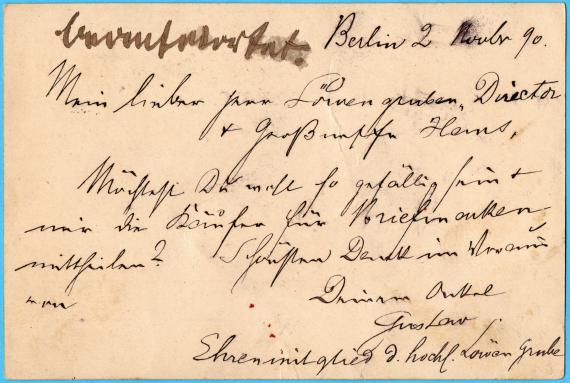 beantwortet. Berlin 2 Novbr 90.
Mein lieber Herr Löwengruben, Director
+ Großneffe Hans,
Möchtest Du wohl so gefällig sein +
mir die Käufer für Briefmarken
mittheilen? Schönsten Dank im Voraus
von
Deinem Onkel
Gustav.
Ehrenmitglied d. hochl. Löwen Grube